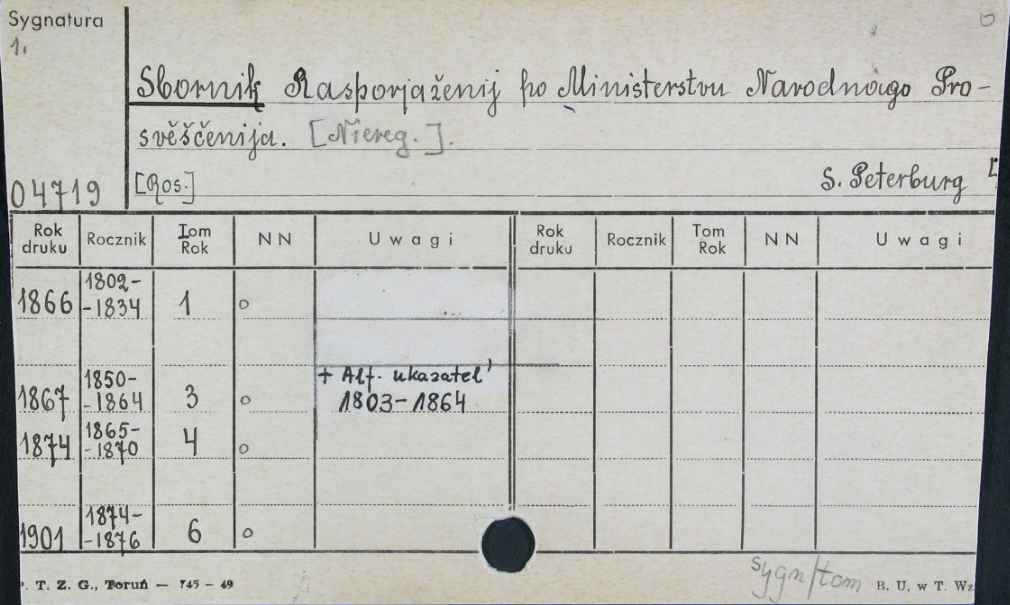 Sygnatura
1.
Sbornik Rasporjaženij po Ministerstvu Narodnago Pro-
svěščenija. [Niereg.].
04719 [Ros.] S. Peterburg [
Rok druku Rocznik Tom Rok NN Uwagi Rok druku Rocznik Tom Rok NN Uwagi
1866 1802--1834 1 o
+ Alf. ukazatel'
1867 1850--1864 3 o 1803-1864
1874 1865--1870 4 o
1901 1874--1876 6 o
sygn/tom
P. T. Z. G., Toruń — 745 - 49 B. U. w T. Wz